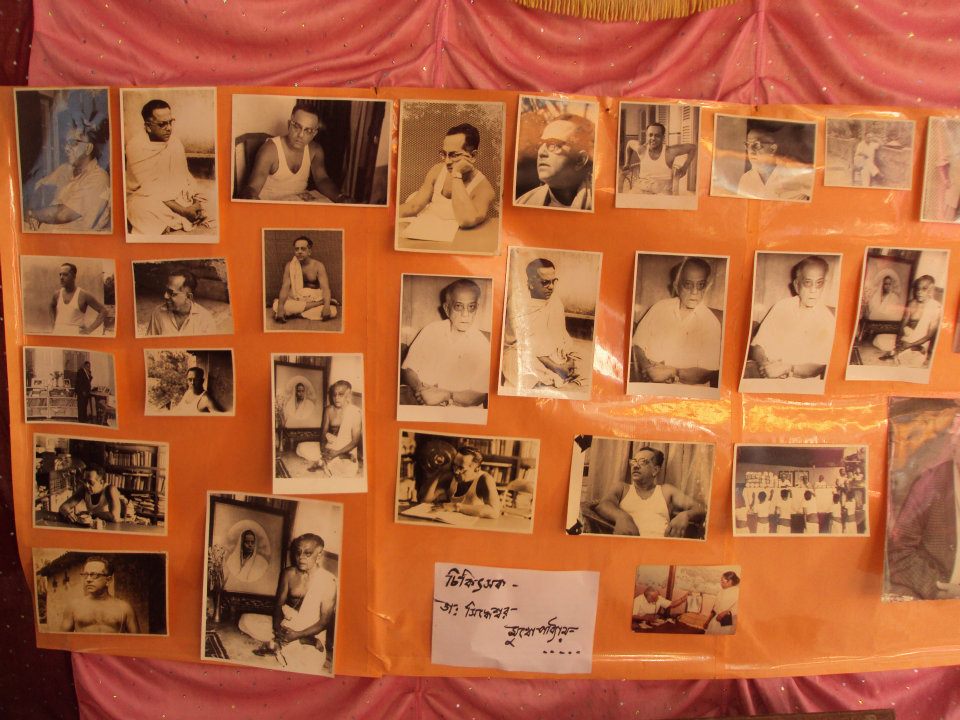 চিকিৎসক -
ডাঃ সিদ্ধেশ্বর
মুখোপাধ্যায়
.....